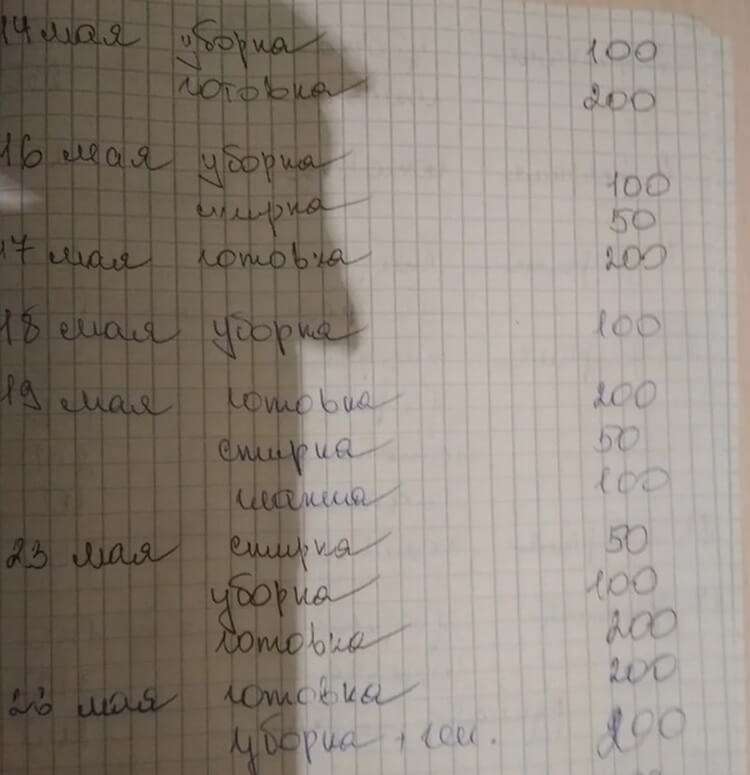 14 мая уборка 100
готовка 200
16 мая уборка 100
стирка 50
17 мая готовка 200
18 мая уборка 100
19 мая готовка 200
стирка 50
100
23 мая стирка 50
уборка 100
готовка 200
мая готовка 200
уборка + ген. 200